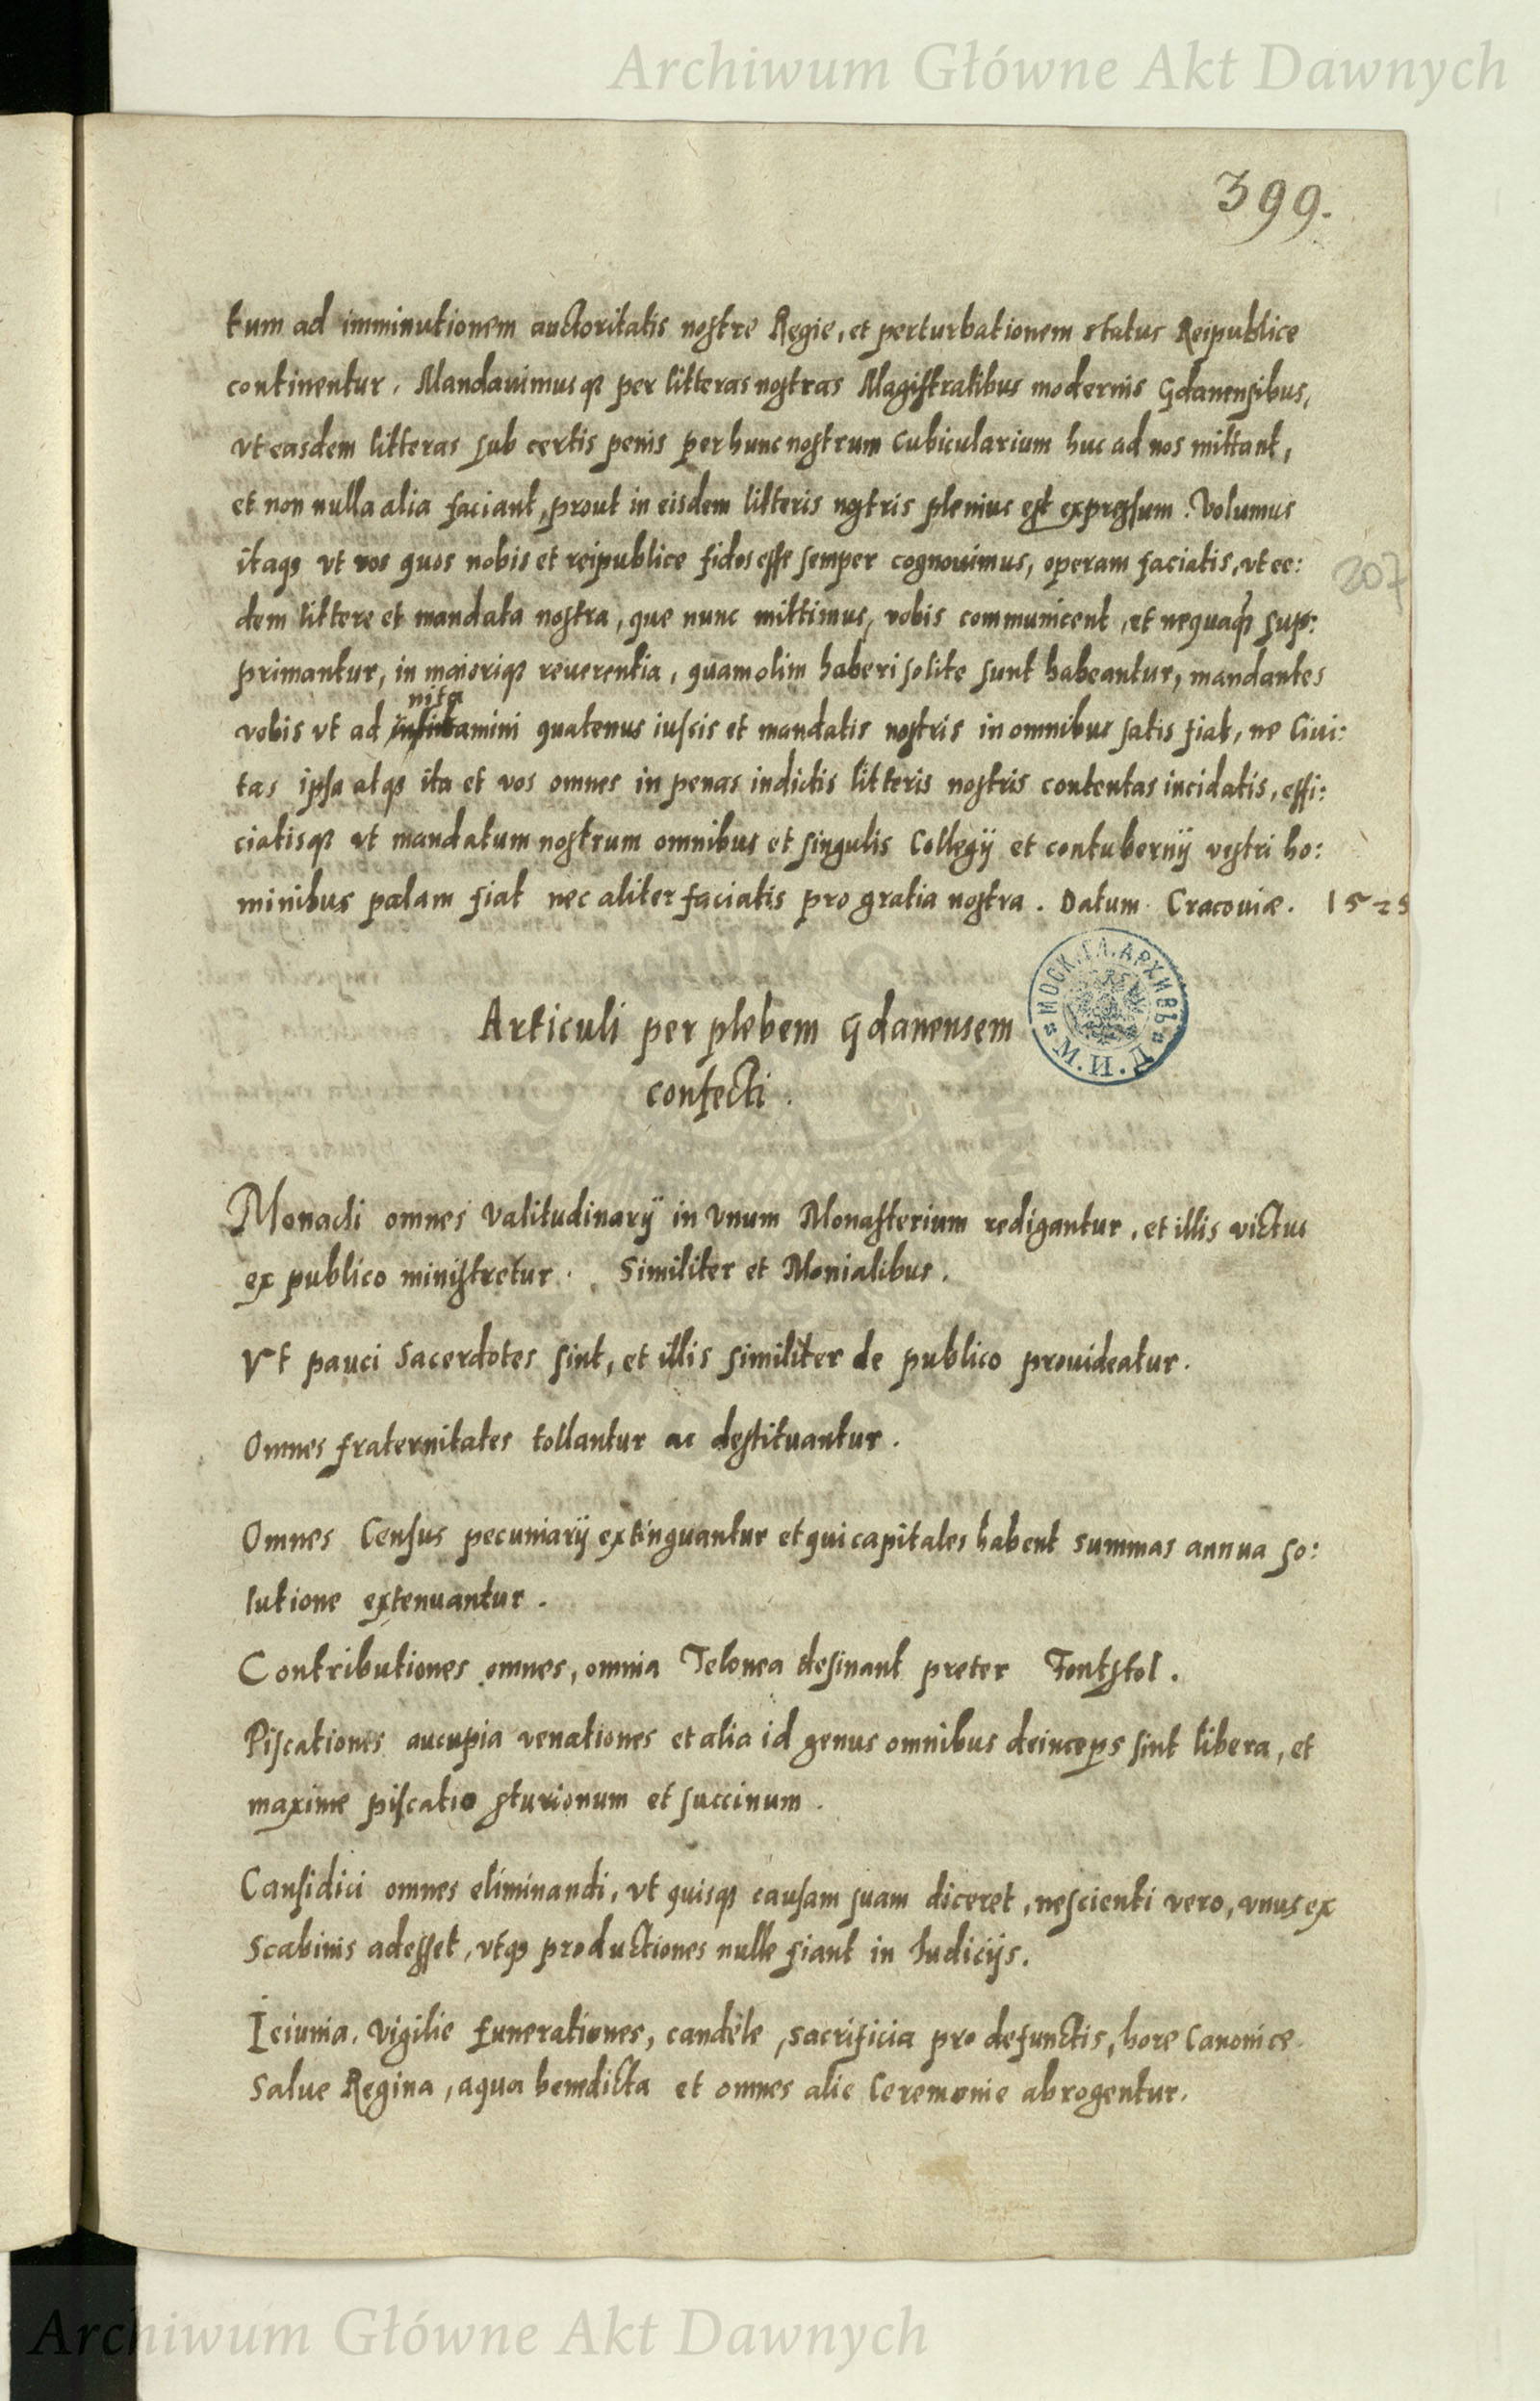 Archiwum Główne Akt Dawnych
399.
tum ad imminutionem auctoritatis nostre Regie, et perturbationem status Reipublice
continentur. Mandauimusqȝ per litteras nostras Magistratibus modernis Gdanensibus,
vt easdem litteras sub certis penis per hunc nostrum Cubicularium huc ad nos mittant,
et non nulla alia faciant, prout in eisdem litteris nostris plenius est expressum. Volumus
itaqȝ vt vos quos nobis et reipublice fidos esse semper cognouimus, operam faciatis, vt ee:
207
dem littere et mandata nostra, que nunc mittimus, vobis communicent, et nequaqȝ sup:
primantur, in maioriqȝ reuerentia, quam olim haberi solite sunt habeantur, mandantes
nita
vobis vt ad amini quatenus iussis et mandatis nostris in omnibus satis fiat, ne Ciui:
tas ipsa atqȝ ita et vos omnes in penas in dictis litteris nostris contentas incidatis, effi:
ciatisqȝ vt mandatum nostrum omnibus et singulis Collegij et contubernij vestri ho:
minibus palam fiat nec aliter faciatis pro gratia nostra. Datum Cracouiæ. 1525
Articuli per plebem Gdanensem
confecti.
МОСК. ГЛ. АРХИВЪ М.И.Д.
Monachi omnes Valitudinarij in vnum Monasterium redigantur, et illis victus
ex publico ministretur. Similiter et Monialibus.
Vt pauci Sacerdotes sint, et illis similiter de publico prouideatur.
Omnes fraternitates tollantur ac destituantur.
Omnes Census pecuniarij extinguantur et qui capitales habent summas annua so:
lutione extenuantur.
Contributiones omnes, omnia Telonea desinant preter Fontstol.
Piscationes aucupia venationes et alia id genus omnibus deinceps sint libera, et
maxime piscatio sturionum et succinum.
Causidici omnes eliminandi, vt quisqȝ causam suam diceret, nescienti vero, vnus ex
Scabinis adesset, vtqȝ productiones nulle fiant in Iudicijs.
Ieiunia, Vigilie funerationes, candele, sacrificia pro defunctis, hore Canonice
Salue Regina, aqua benedicta et omnes alie Ceremonie abrogentur.
Archiwum Główne Akt Dawnych